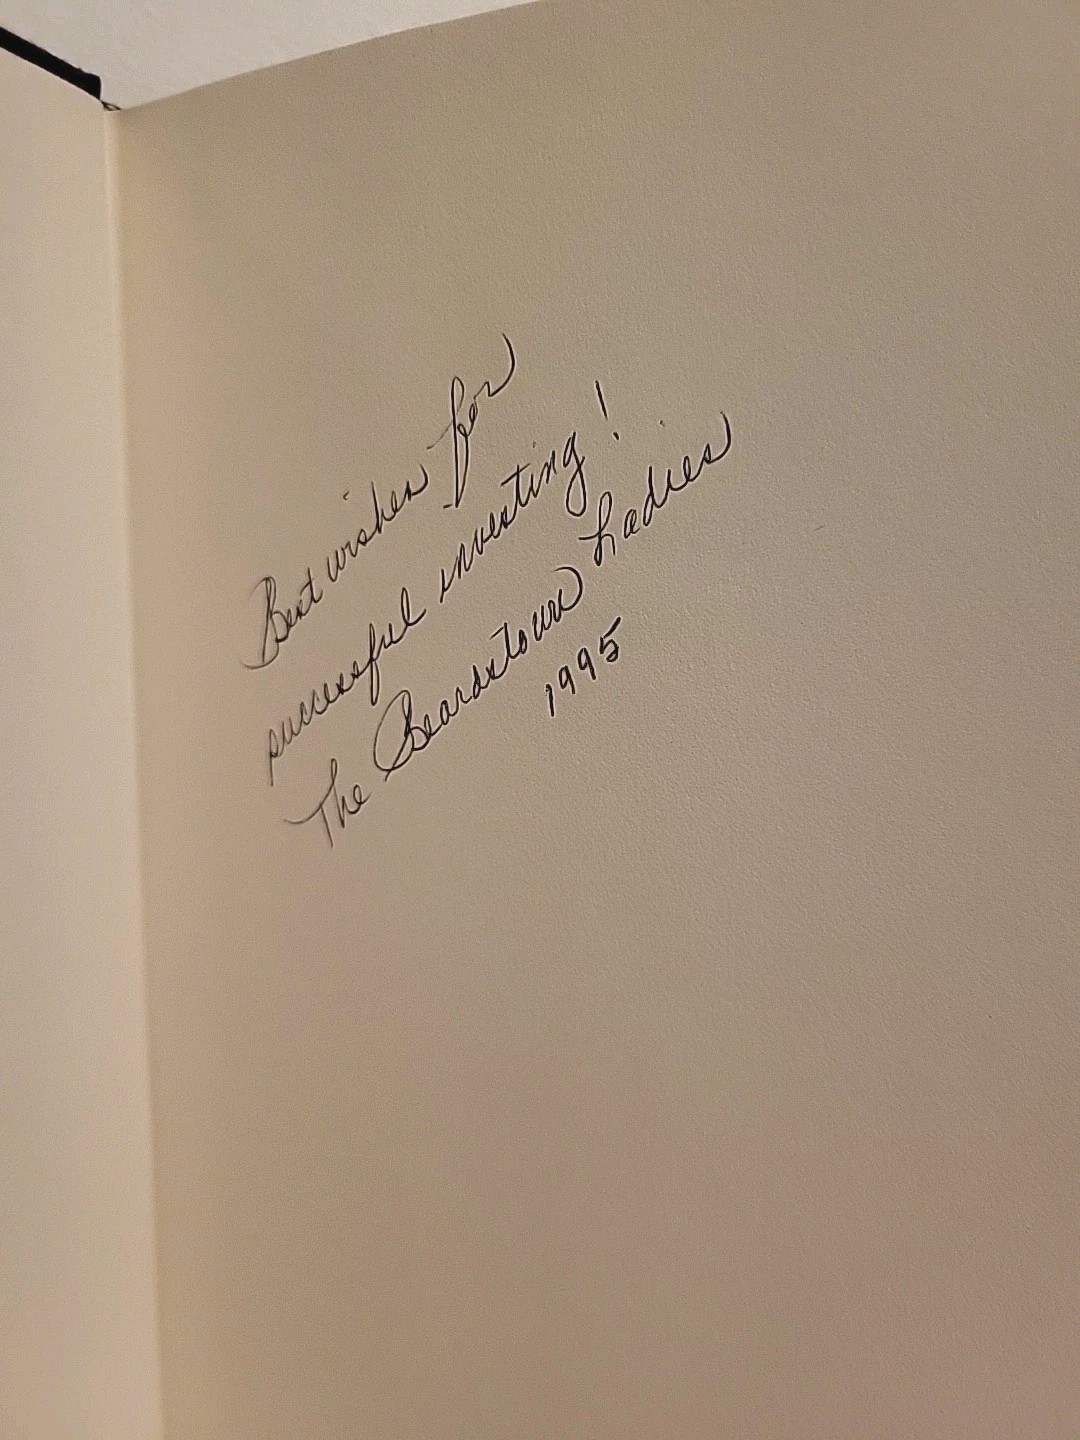 Best wishes for
successful investing!
The Beardstown Ladies
1995